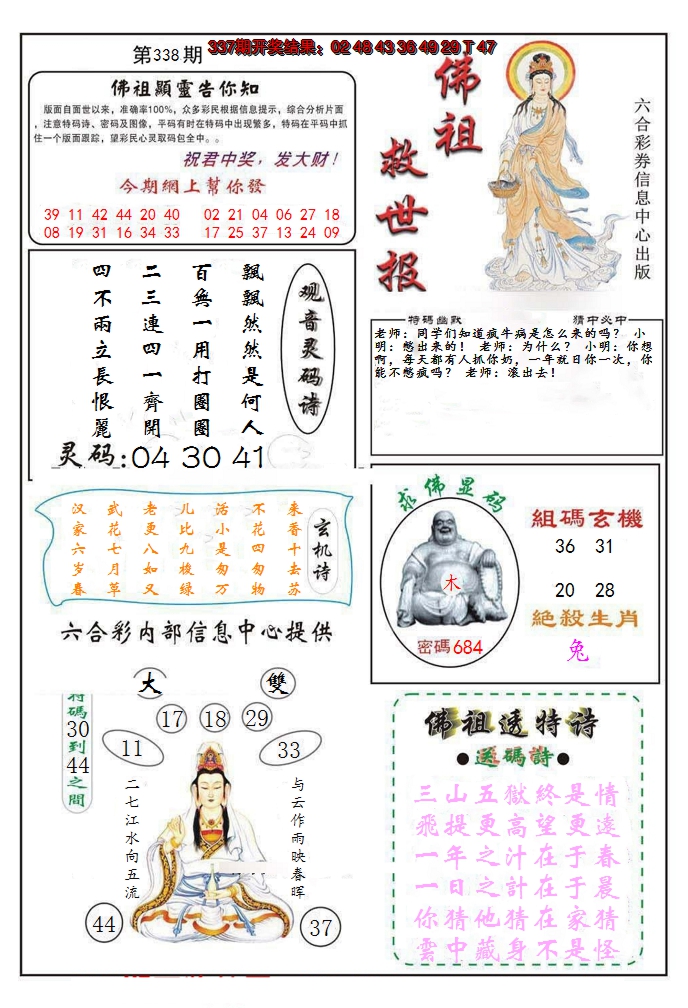 337期开奖结果：02 48 43 36 49 29 T 47
第338期
佛祖顯靈告你知
版面自面世以来，准确率100%，众多彩民根据信息提示，综合分析片面
，注意特码诗、密码及图像，平码有时在特码中出现繁多，特码在平码中抓
住一个版面跟踪，望彩民心灵取码包全中。。
祝君中奖，发大财！
今期網上幫你發
39 11 42 44 20 40 02 21 04 06 27 18
08 19 31 16 34 33 17 25 37 13 24 09
佛祖
救世报
六合彩券信息中心出版
观音灵码诗
飄飄然然是何人
百無一用打圈圈
二三連四一齊開
四不兩立長恨麗
灵码:04 30 41
特碼幽默 猜中必中
老师：同学们知道疯牛病是怎么来的吗？ 小
明：憋出来的！ 老师：为什么？ 小明：你想
啊，每天都有人抓你奶，一年就日你一次，你
能不憋疯吗？ 老师：滚出去！
玄机诗
来香十去苏
不花四匆物
活小是匆万
儿比九梭绿
老更八如又
武花七月草
汉家六岁春
六合彩内部信息中心提供
求佛显码
木
密碼684
组碼玄機
36 31
20 28
絕殺生肖
兔
大 雙
特碼30到44之間
17 18 29
11 33
二七江水向五流
与云作雨映春晖
44 37
佛祖透特诗
●送碼詩●
三山五獄終是情
飛提更高望更遠
一年之汁在于春
一日之計在于晨
你猜他猜在家猜
雲中藏身不是怪